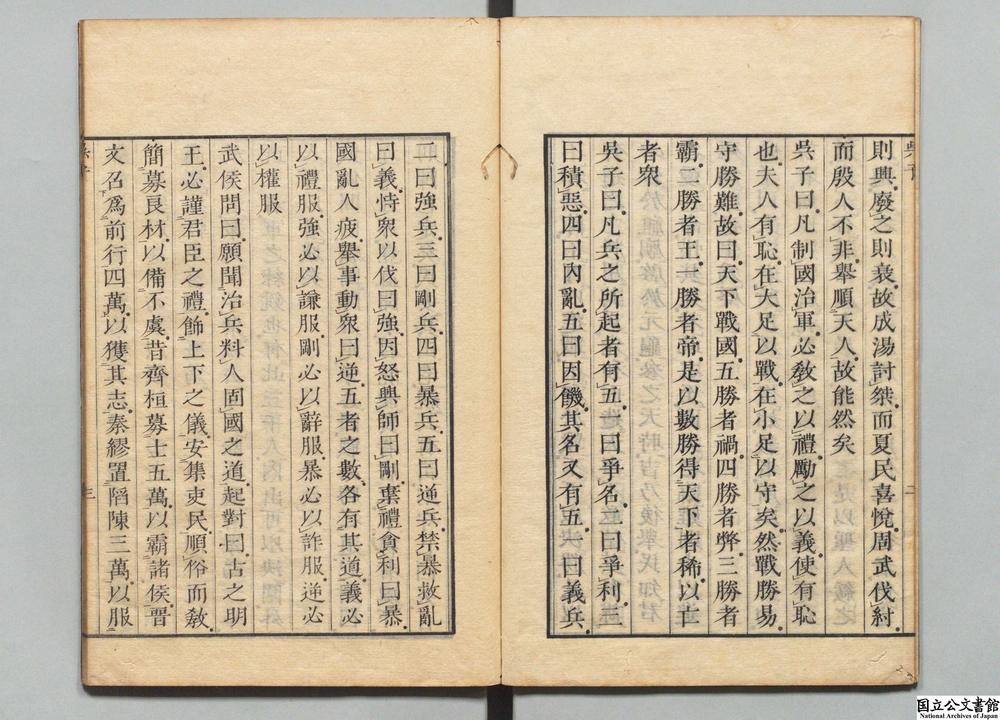 則興廢之則衰故成湯討桀而夏民喜悅周武伐紂
而殷人不非舉順天人故能然矣
吳子曰凡制國治軍必敎之以禮勵之以義使有恥
也夫人有恥在大足以戰在小足以守矣然戰勝易
守勝難故曰天下戰國五勝者禍四勝者弊三勝者
霸二勝者王一勝者帝是以數勝得天下者稀以亡
者衆
吳子曰凡兵之所起者有五一曰爭名二曰爭利三
曰積惡四曰內亂五曰因饑其名又有五一曰義兵
二曰強兵三曰剛兵四曰暴兵五曰逆兵禁暴救亂
曰義恃衆以伐曰強因怒興師曰剛棄禮貪利曰暴
國亂人疲舉事動衆曰逆五者之數各有其道義必
以禮服強必以謙服剛必以辭服暴必以詐服逆必
以權服
武侯問曰願聞治兵料人固國之道起對曰古之明
王必謹君臣之禮飾上下之儀安集吏民順俗而敎
簡募良材以備不虞昔齊桓募士五萬以霸諸侯晉
文召爲前行四萬以獲其志秦繆置陷陳三萬以服
三
国立公文書館
National Archives of Japan